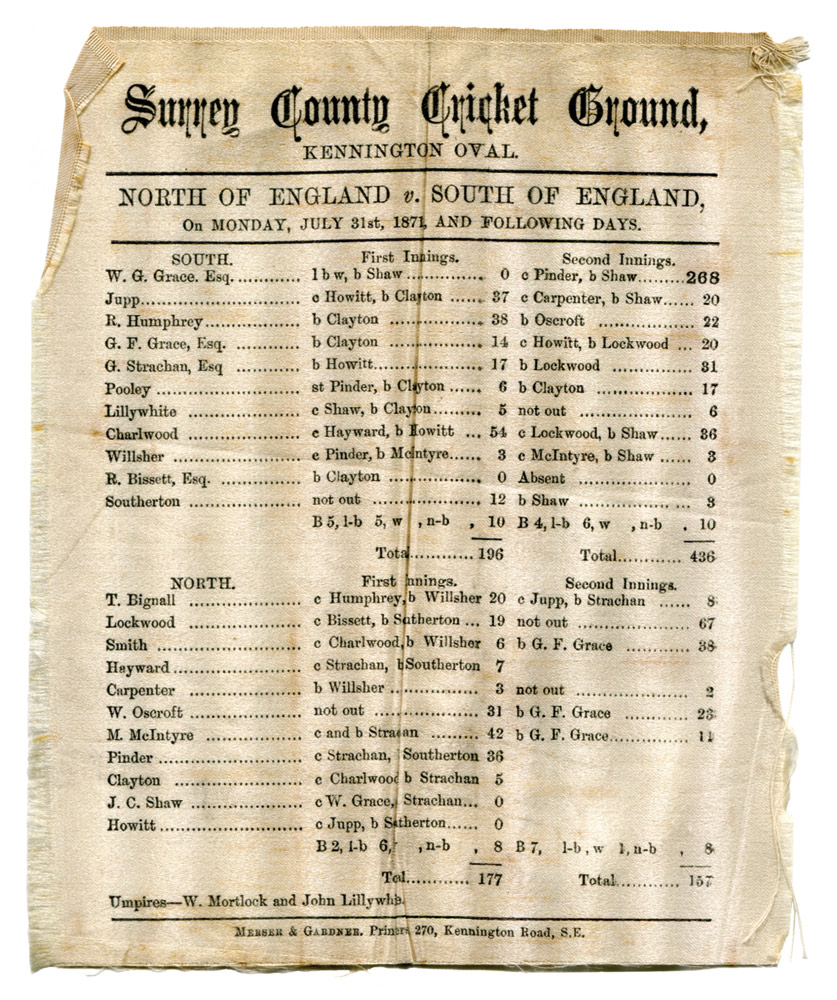 Surrey County Cricket Ground,
KENNINGTON OVAL.
NORTH OF ENGLAND v. SOUTH OF ENGLAND,
On MONDAY, JULY 31st, 1871, AND FOLLOWING DAYS.
SOUTH. First Innings. Second Innings.
W. G. Grace. Esq. ............ l b w, b Shaw ............... 0 c Pinder, b Shaw......... 268
Jupp........................... c Howitt, b Clayton ...... 37 c Carpenter, b Shaw...... 20
R. Humphrey.................. b Clayton .................. 38 b Oscroft .................. 22
G. F. Grace, Esq. ............ b Clayton .................. 14 c Howitt, b Lockwood ... 20
G. Strachan, Esq ............ b Howitt..................... 17 b Lockwood ............... 31
Pooley ........................ st Pinder, b Clayton ...... 6 b Clayton .................. 17
Lillywhite ..................... c Shaw, b Clayton......... 5 not out ..................... 6
Charlwood .................. c Hayward, b Howitt ... 54 c Lockwood, b Shaw...... 36
Willsher ..................... c Pinder, b McIntyre...... 3 c McIntyre, b Shaw ...... 3
R. Bissett, Esq. ............... b Clayton .................. 0 Absent ..................... 0
Southerton .................. not out ..................... 12 b Shaw ..................... 3
B 5, l-b 5, w , n-b , 10 B 4, l-b 6, w , n-b . 10
Total............ 196 Total............ 436
NORTH. First Innings. Second Innings.
T. Bignall ..................... c Humphrey, b Willsher 20 c Jupp, b Strachan ...... 8
Lockwood .................. c Bissett, b Sutherton ... 19 not out ..................... 67
Smith ........................ c Charlwood, b Willsher 6 b G. F. Grace ............ 38
Hayward ..................... c Strachan, b Southerton 7
Carpenter .................. b Willsher .................. 3 not out ..................... 2
W. Oscroft .................. not out ..................... 31 b G. F. Grace ............ 23
M. McIntyre ............... c and b Stracan ......... 42 b G. F. Grace............... 11
Pinder ........................ c Strachan, Southerton 36
Clayton ..................... c Charlwood b Strachan 5
J. C. Shaw .................. c W. Grace, Strachan... 0
Howitt ........................ c Jupp, b Sutherton...... 0
B 2, l-b 6, , n-b , 8 B 7, l-b , w 1, n-b , 8
Total............ 177 Total............ 157
Umpires—W. Mortlock and John Lillywhite.
MERSER & GARDNER. Printers 270, Kennington Road, S.E.